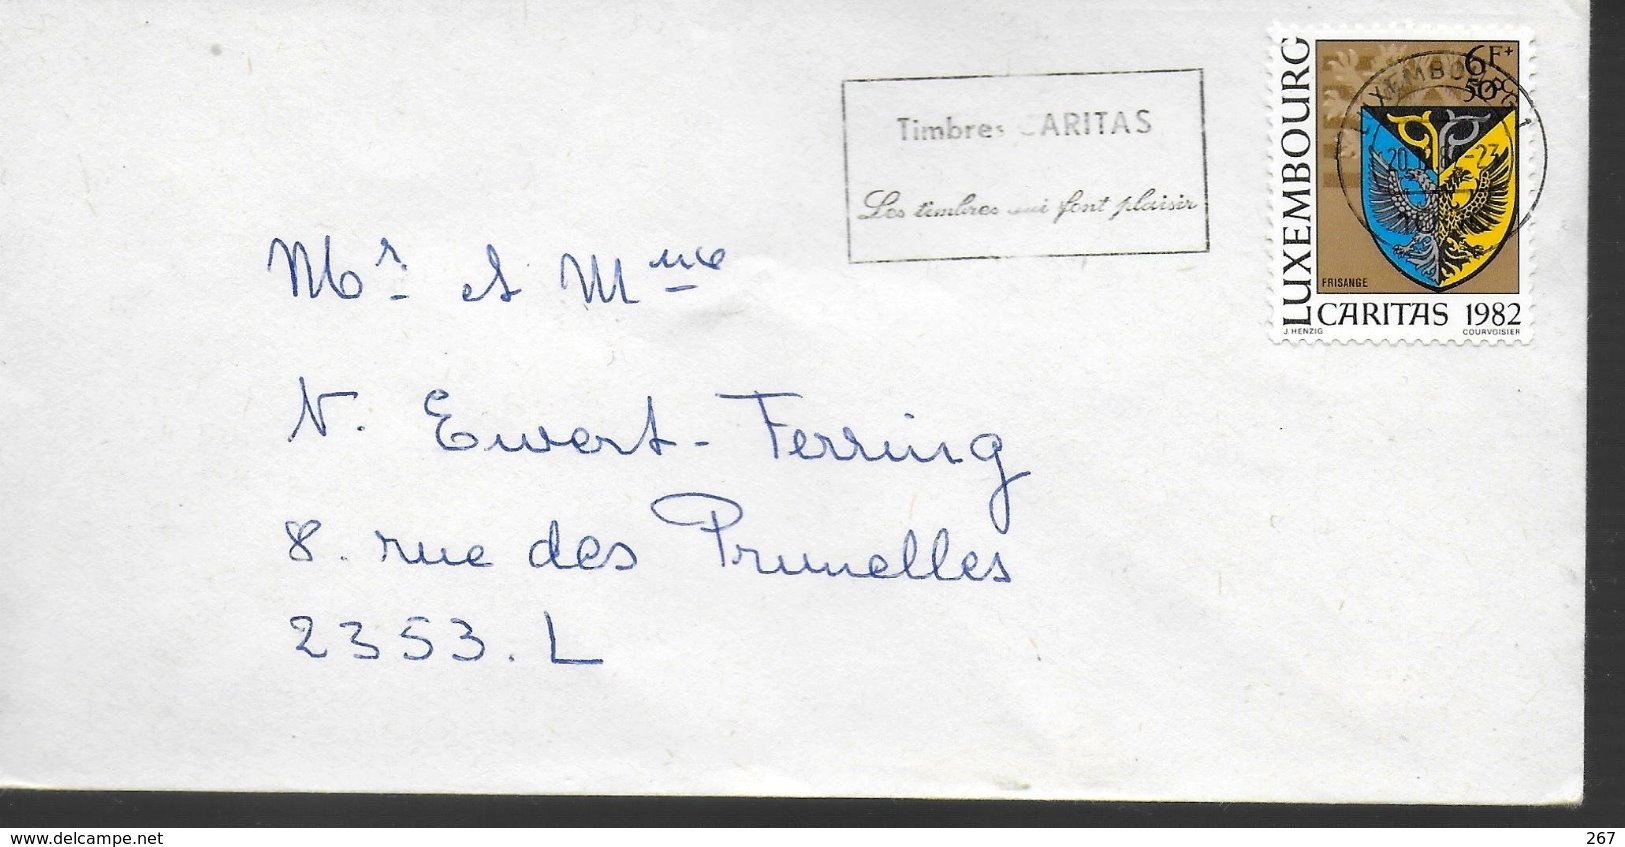 Timbres CARITAS
Les timbres qui font plaisir
LUXEMBOURG
6F+
50c
LUXEMBOURG 1
FRISANGE
CARITAS 1982
J. HENZIG
COURVOISIER
Mr et Mme
N. Ewert-Ferring
8. rue des Prunelles
2353. L
www.delcampe.net
267